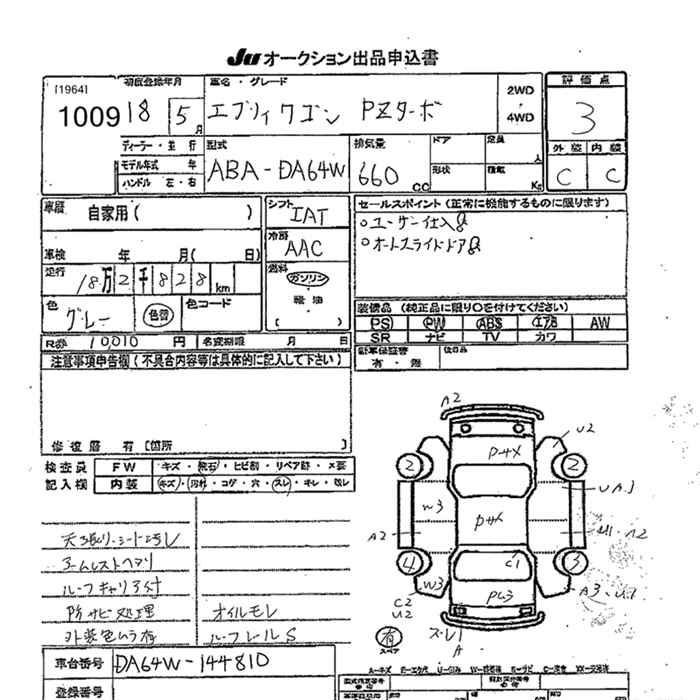 Ju オークション出品申込書
[1964] 1009
初度登録年月 18 5月
車名・グレード エブリイワゴン PZターボ
2WD・4WD
評価点 3
外装 C 内装 C
ディーラー・並行
モデル年式 年
ハンドル 左・右
型式 ABA-DA64W
排気量 660 CC
ドア
形状
定員 人
積載 Kg
車歴 自家用( )
シフト IAT
セールスポイント (正常に機能するものに限ります)
○ユーザー仕入
○オートスライドドア
冷房 AAC
車検 年 月( 日)
走行 18万2千828km
燃料 ガソリン
軽油
( )
色 グレー 色替 色コード
装備品 (純正品に限り○を付けてください)
PS PW ABS エアB AW
SR ナビ TV カワ
R券 10,010 円 名変期限 月 日
新車保証書 有・無 後日品
注意事項申告欄 (不具合内容等は具体的に記入して下さい)
修復歴 有 [箇所 ]
検査員記入欄
FW キズ・飛石・ヒビ割・リペア跡・X要
内装 キズ・汚れ・コゲ・穴・スレ・キレ・
天張り・シート汚レ
アームレストヘタリ
ルーフキャリア付
防サビ処理 オイルモレ
外装色ムラ有 ルーフレールS
A2
U2
P4X
2 2
W3
P4X
UA1
A2
U1・A2
4 3
C1
W3
PW3
A3・U1
C2
U2
ス・レ1
A
有
スペア
車台番号 DA64W-144810
登録番号